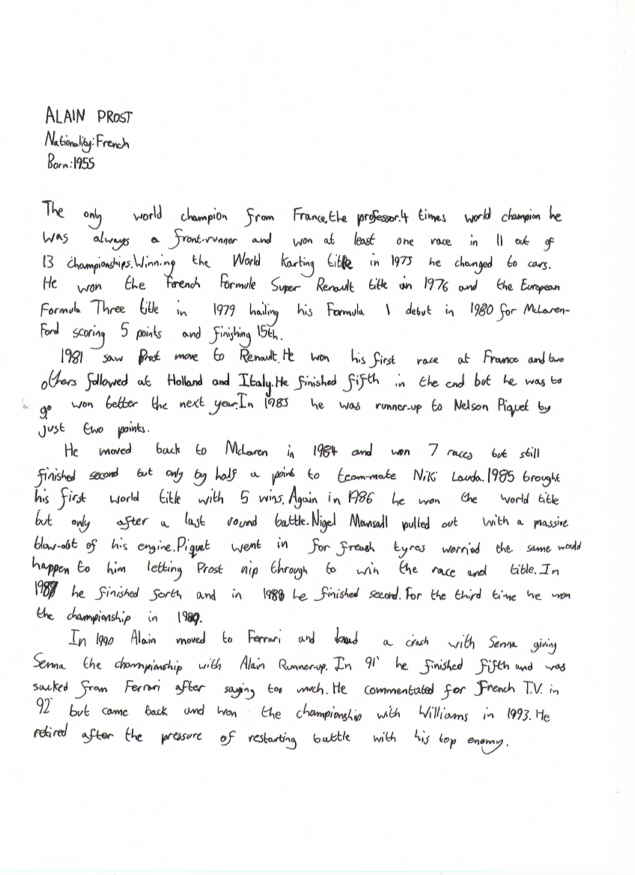 ALAIN PROST
Nationality:French
Born:1955
The only world champion from France,the professor.4 times world champion he
was always a front-runner and won at least one race in 11 out of
13 championships.Winning the World Karting title in 1973 he changed to cars.
He won the French Formule Super Renault title in 1976 and the European
Formula Three title in 1979 hailing his Formula 1 debut in 1980 for McLaren-
Ford scoring 5 points and finishing 15th.
1981 saw Prost move to Renault.He won his first race at France and two
others followed at Holland and Italy.He finished fifth in the end but he was to
go won better the next year.In 1983 he was runner-up to Nelson Piquet by
just two points.
He moved back to McLaren in 1984 and won 7 races but still
finished second but only by half a point to team-mate Niki Lauda.1985 brought
his first world title with 5 wins.Again in 1986 he won the world title
but only after a last round battle.Nigel Mansell pulled out with a massive
blow-out of his engine.Piquet went in for fresh tyres worried the same would
happen to him letting Prost nip through to win the race and title.In
1987 he finished forth and in 1988 he finished second.For the third time he won
the championship in 1989.
In 1990 Alain moved to Ferrari and a crash with Senna giving
Senna the championship with Alain Runner-up.In 91' he finished fifth and was
sacked from Ferrari after saying too much.He commentated for French T.V. in
92' but came back and won the championship with Williams in 1993.He
retired after the pressure of restarting battle with his top enemy.